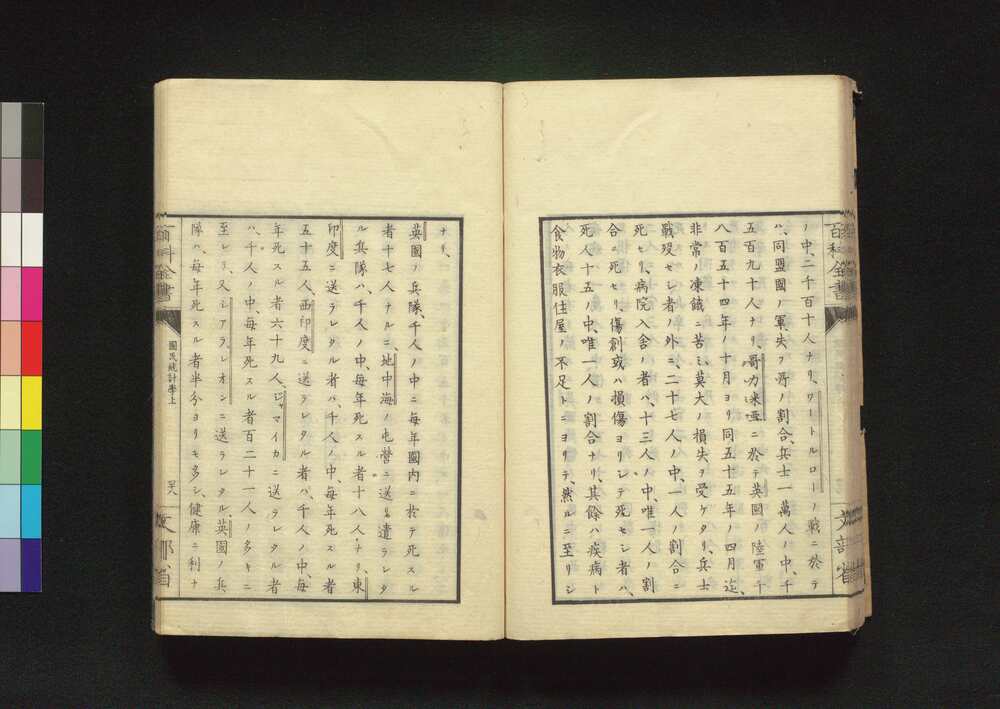 ノ中、二千百十人ナリ、ワートルローノ戰ニ於テ
ハ、同盟國ノ軍、失フ所ノ割合、兵士一萬人ノ中、千
五百九十人ナリ、哥力米亜ニ於テ英國ノ陸軍千
八百五十四年ノ十月ヨリ同五十五年ノ四月迄、
非常ノ凍餓ニ苦ミ、莫大ノ損失ヲ受ケタリ、兵士
戰歿セシ者ノ外ニ、二十七人ノ中、一人ノ割合ニ
死セリ、病院入舍ノ者ハ、十三人ノ中、唯一人ノ割
合ニ死セリ、傷創或ハ損傷ヨリシテ死セシ者ハ、
死人十五ノ中、唯一人ノ割合ナリ、其餘ハ疾病ト
食物衣服住屋ノ不足トニヨリテ、然ルニ至リシ
百科全書
文部省
ナリ、
英國ノ兵隊、千人ノ中ニ每年國內ニ於テ死スル
者十七人ナルニ、地中海ノ屯營ニ送リ遣ラレタ
ル兵隊ハ、千人ノ中、每年死スル者十八人ナリ、東
印度ニ送ラレタル者ハ、千人ノ中、每年死スル者
五十五人、西印度ニ送ラレタル者ハ、千人ノ中、每
年死スル者六十九人、ジャマイカニ送ラレタル者
ハ、千人ノ中、每年死スル者百二十一人ノ多キニ
至レリ、又シアラ、レオンニ送ラレタル、英國ノ兵
隊ハ、每年死スル者半分ヨリモ多シ、健康ニ利ナ
百科全書
國民統計學上
文部省